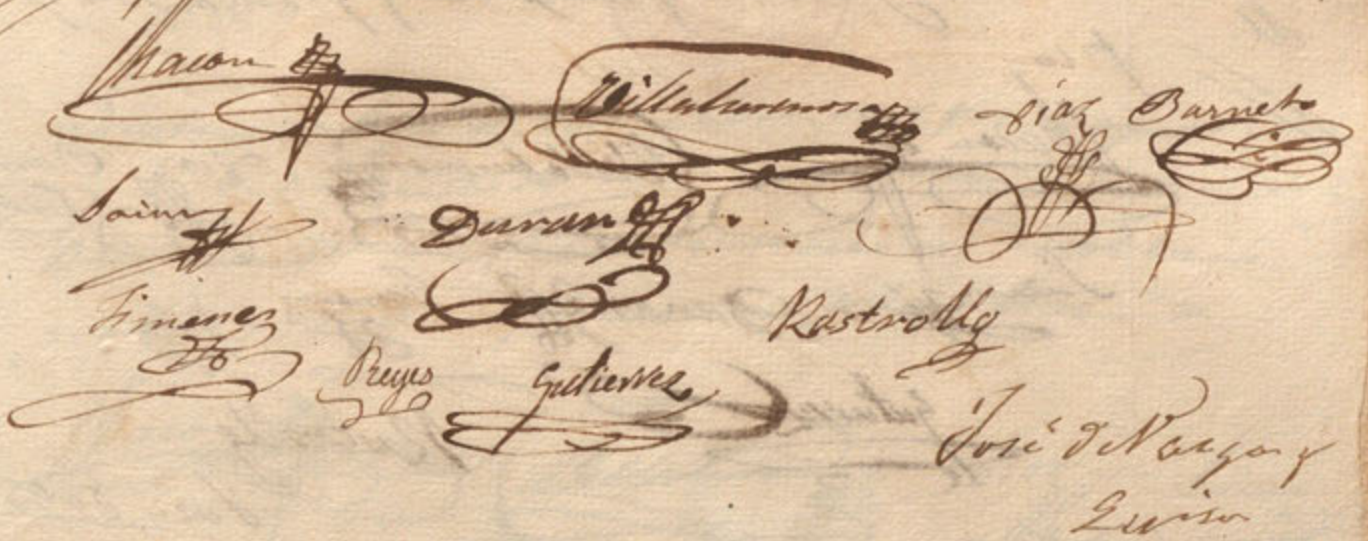 Chacon Villabuena Diaz Barneto
Sainz Duran
Jimenez Rastrollo
Reyes Gutierrez
José de